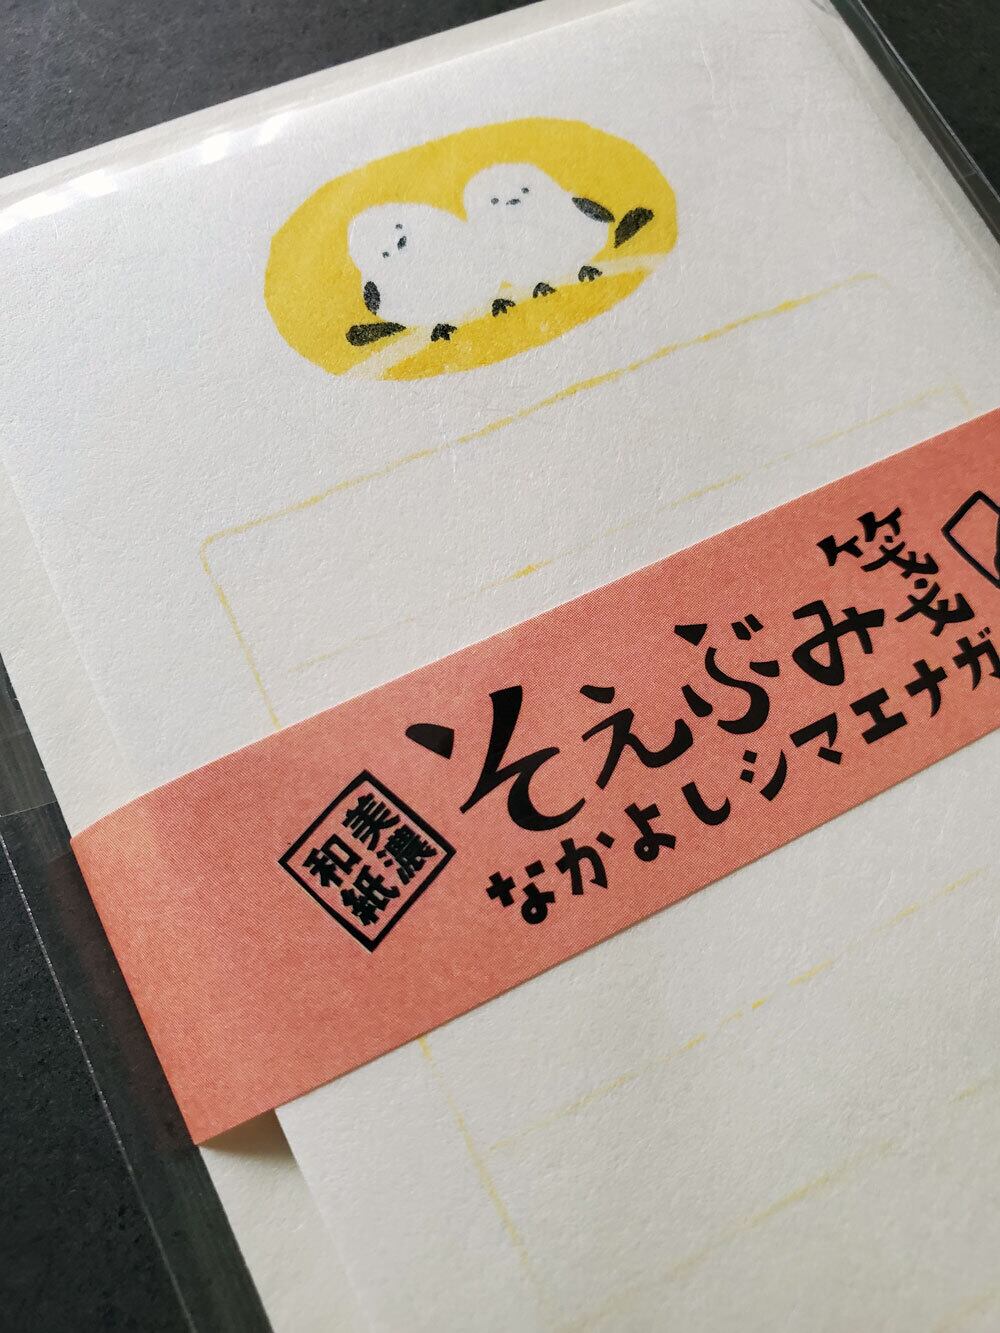 美濃
和紙
そえぶみ箋
なかよしシマエナガ